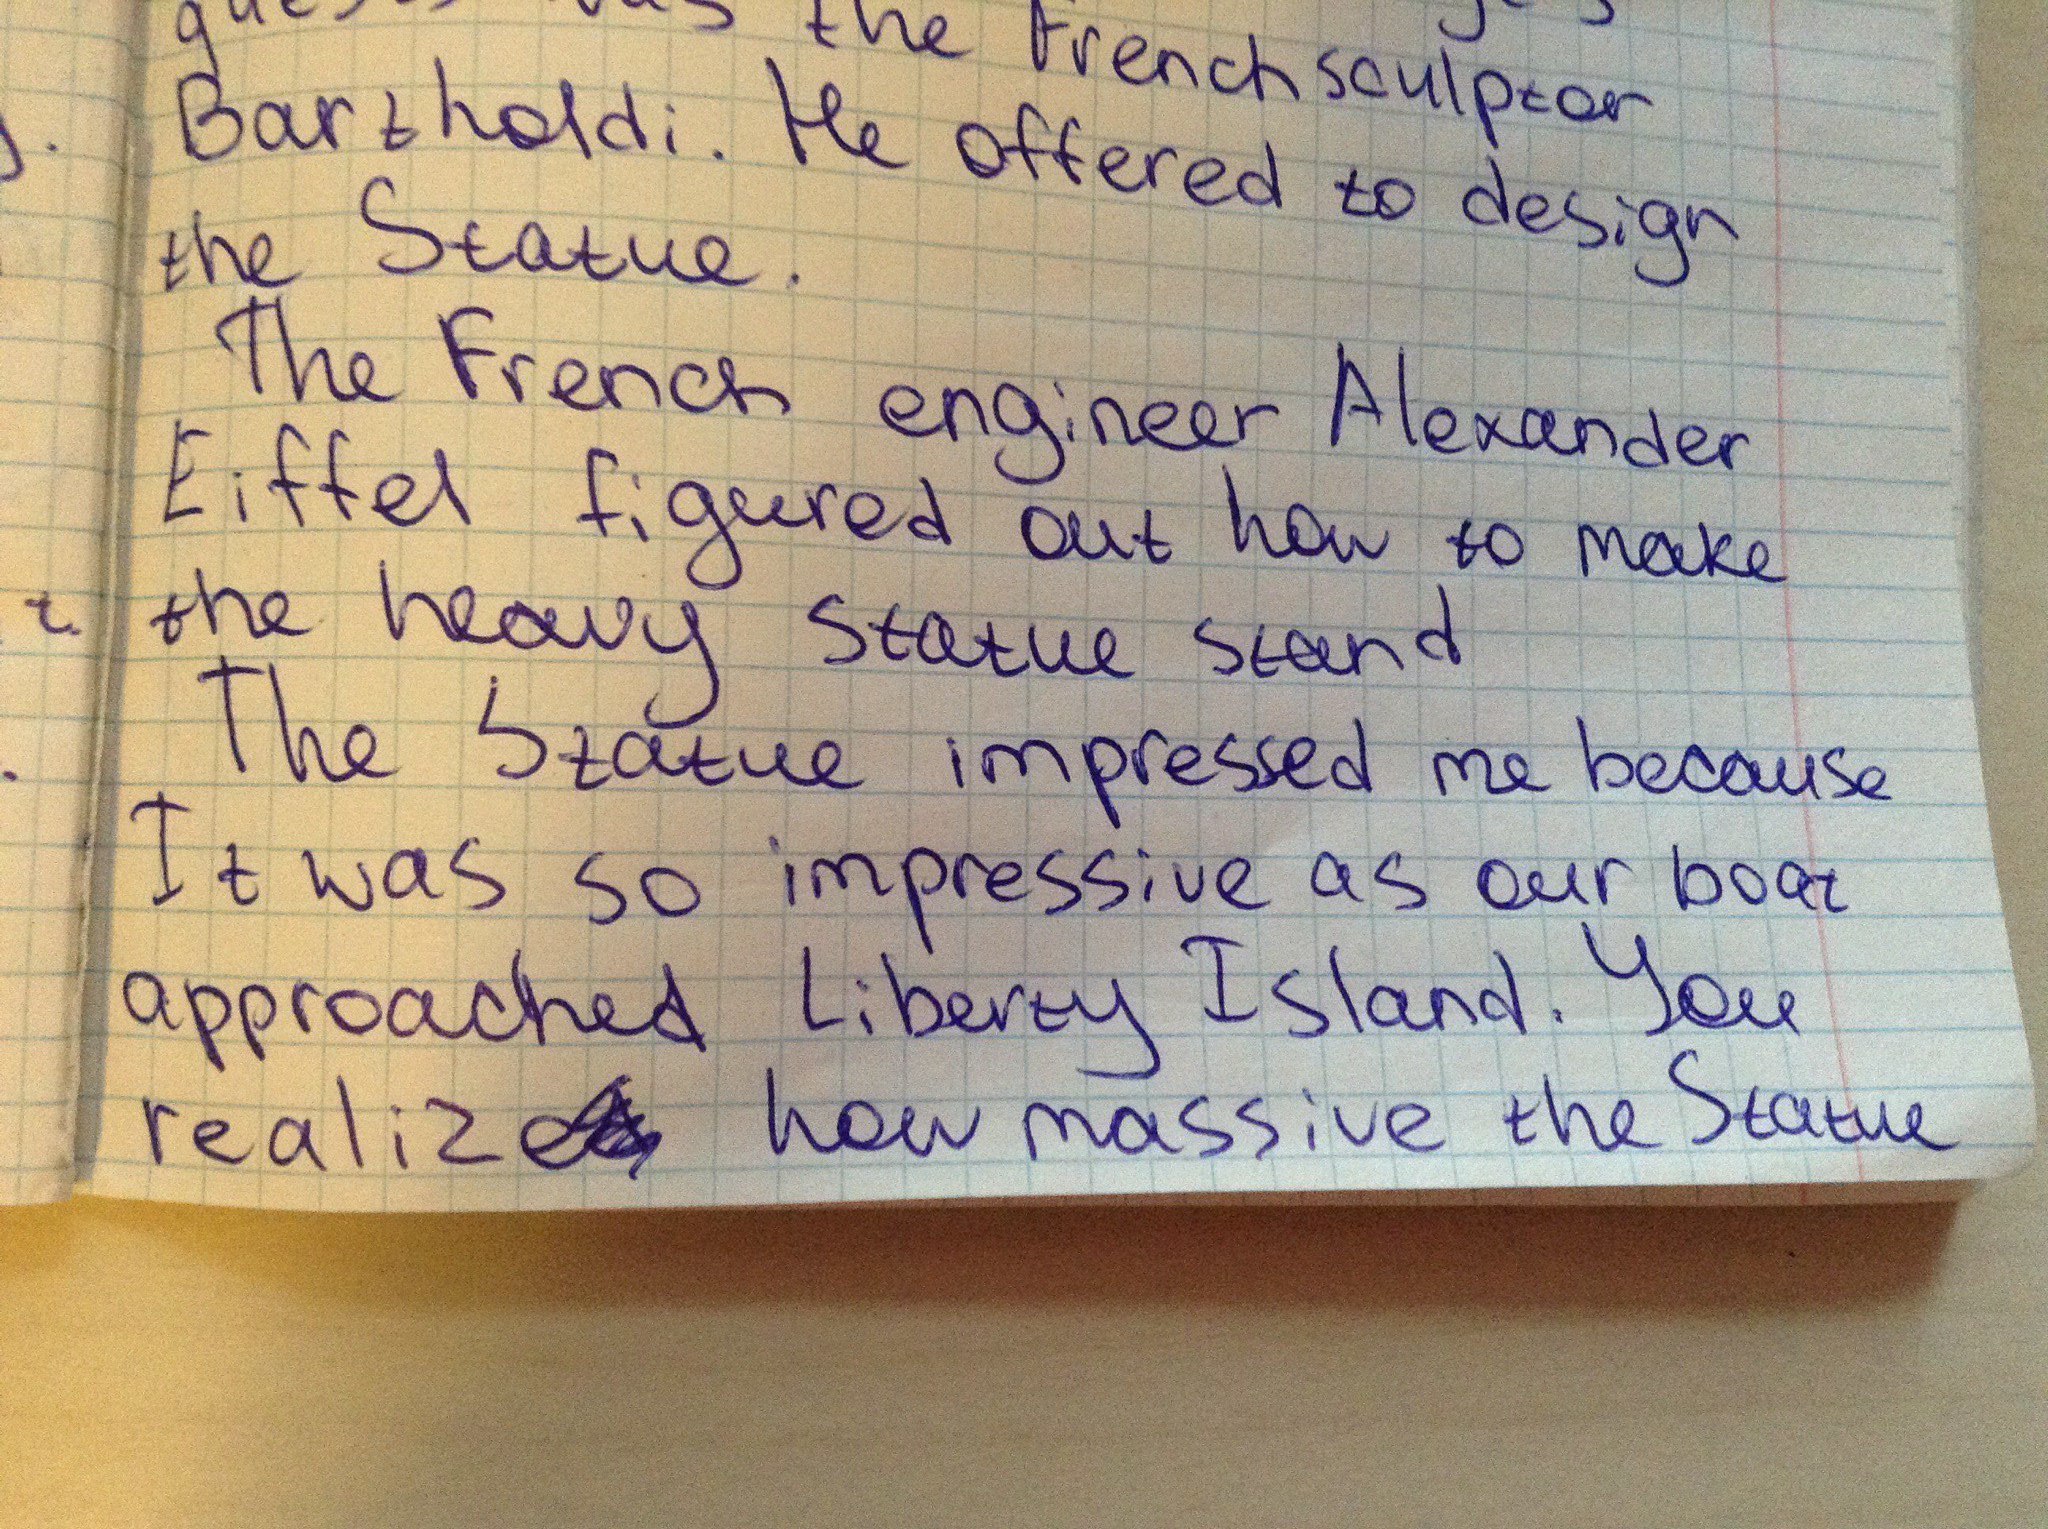 the French sculptor
Bartholdi. He offered to design
the Statue.
The French engineer Alexander
Eiffel figured out how to make
the heavy Statue stand
The Statue impressed me because
It was so impressive as our boat
approached Liberty Island. You
realize how massive the Statue